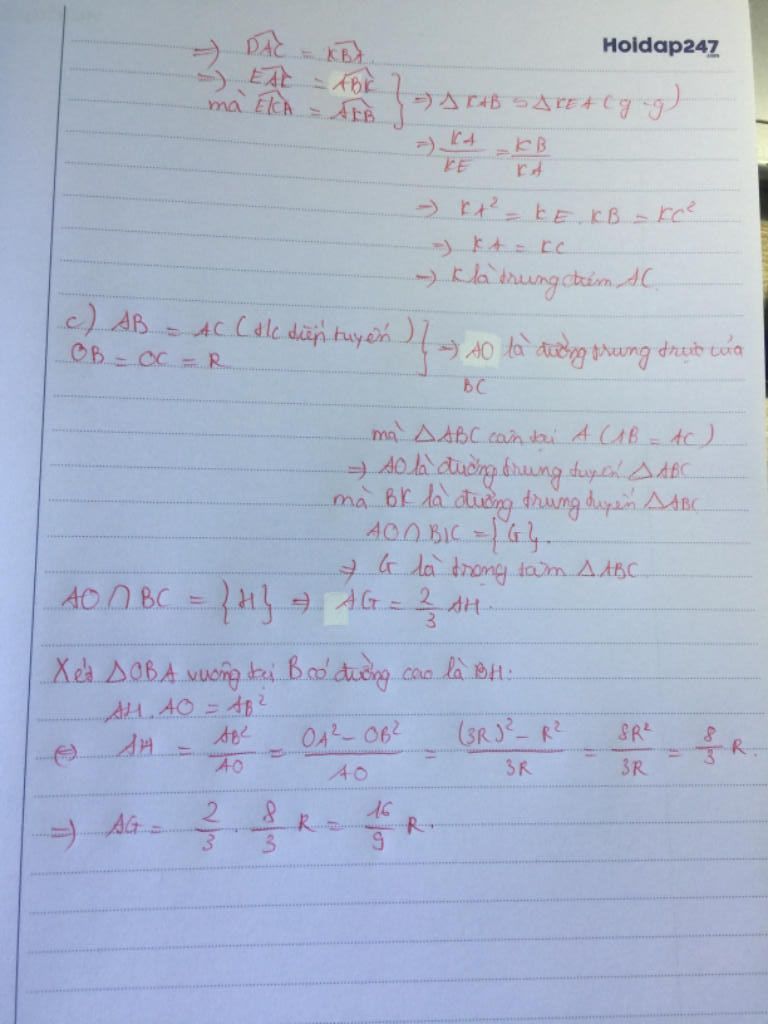 Hoidap247
.com
=> DAC = KBA.
=> EAK = ABK
mà EKA = AKB } => △KAB ∽ △KEA (g-g)
=> KA/KE = KB/KA
=> KA² = KE.KB = KC²
=> KA = KC
=> K là trung điểm AC.
c) AB = AC (t/c tiếp tuyến)
OB = OC = R } => AO là đường trung trực của
BC
mà △ABC cân tại A (AB = AC)
=> AO là đường trung tuyến △ABC
mà BK là đường trung tuyến △ABC
AO ∩ BK = {G}.
=> G là trọng tâm △ABC
AO ∩ BC = {H} => AG = 2/3 AH.
Xét △OBA vuông tại B có đường cao là BH:
AH.AO = AB²
<=> AH = AB²/AO = (OA² - OB²)/AO = ((3R)² - R²)/3R = 8R²/3R = 8/3 R.
=> AG = 2/3 . 8/3 R = 16/9 R.